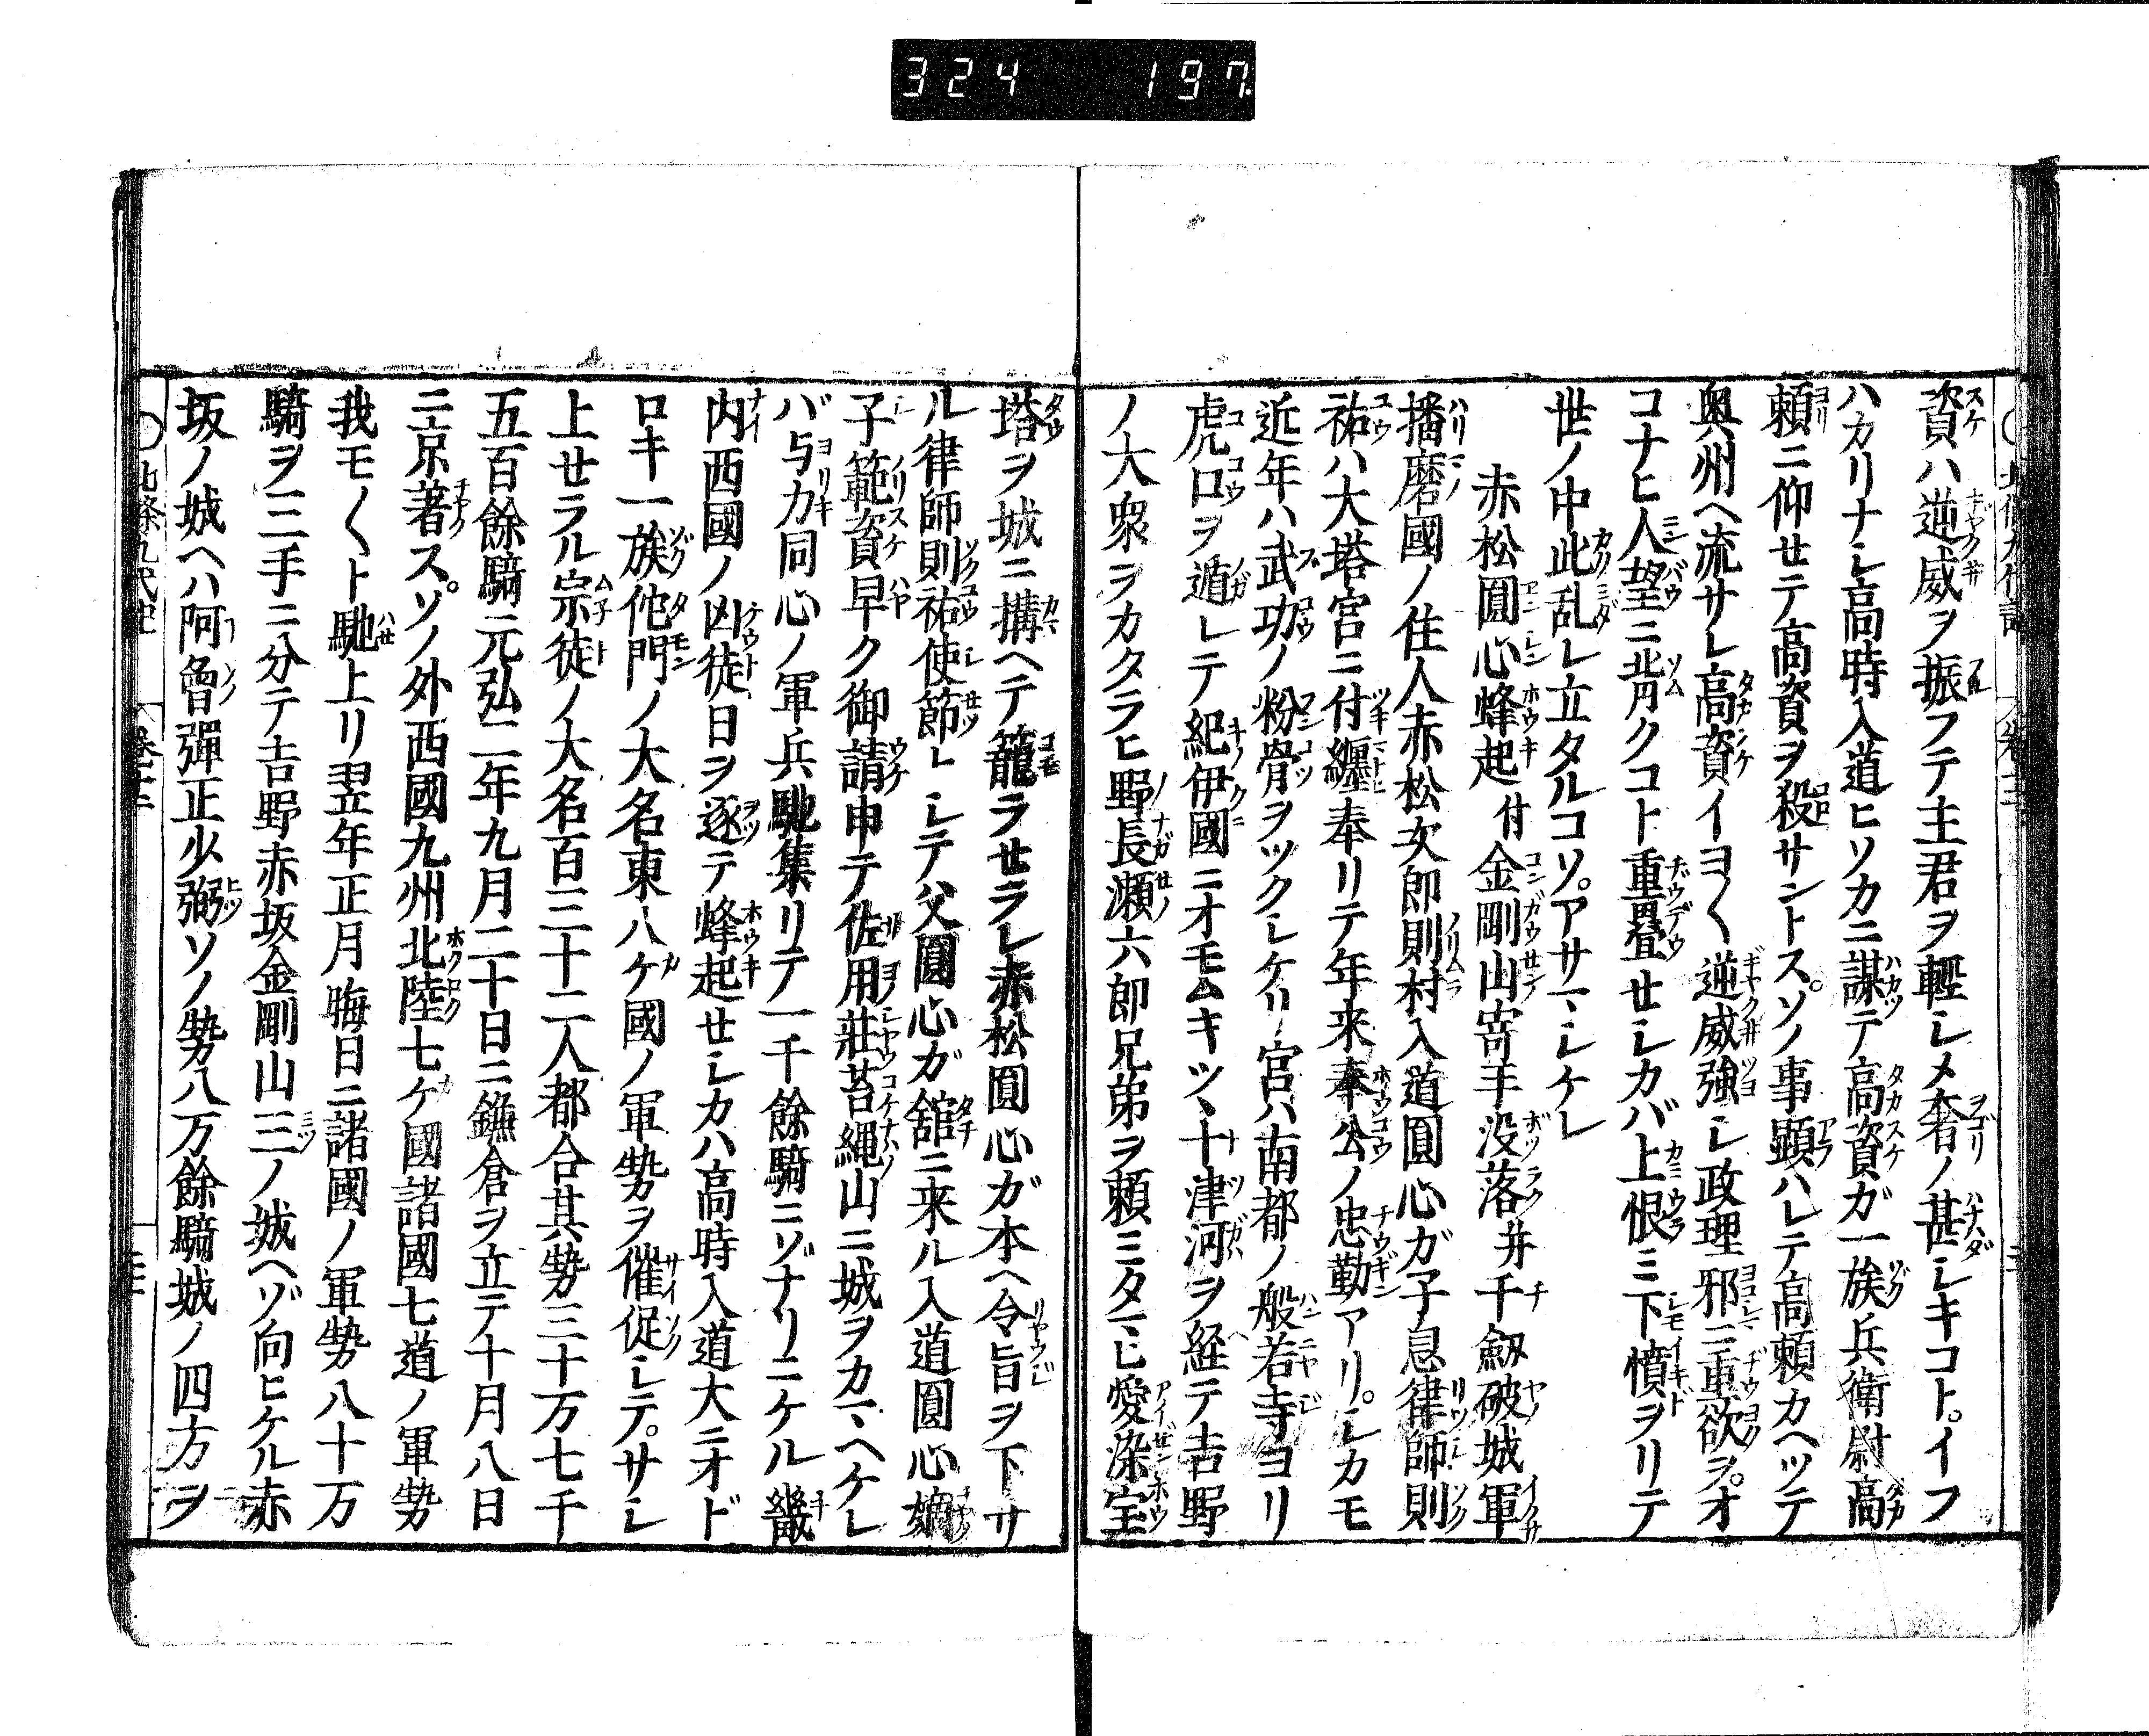 324 197
資ハ逆威ヲ振フテ主君ヲ輕シメ奢ノ甚シキコト。イフ
ハカリナシ高時入道ヒソカニ謀テ高資ガ一族兵衛尉高
頼ニ仰セテ高資ヲ殺サントス。ソノ事顕ハレテ高頼カヘツテ
奥州ヘ流サレ高資イヨ〱逆威強シ政理邪ニ重欲ヲ。オ
コナヒ人望ニ背クコト重疊セシカバ上恨ミ下憤ヲリテ
世ノ中此乱レ立タルコソ。アサマシケレ
赤松圓心蜂起付金剛山寄手没落并千劔破城軍
播磨國ノ住人赤松次郎則村入道圓心ガ子息律師則
祐ハ大塔宮ニ付纏奉リテ年来奉公ノ忠勤アリ。シカモ
近年ハ武功ノ粉骨ヲツクシケリ宮ハ南都ノ般若寺ヨリ
虎口ヲ遁レテ紀伊國ニオモムキツヽ十津河ヲ経テ吉野
ノ大衆ヲカタラヒ野長瀬六郎兄弟ヲ頼ミタマヒ愛染宝
塔ヲ城ニ搆ヘテ籠ラセラレ赤松圓心ガ本ヘ令旨ヲ下サ
ル律師則祐使節トシテ父圓心ガ舘ニ来ル入道圓心嫡
子範資早ク御請申テ佐用莊苔縄山ニ城ヲカマヘケレ
バ与力同心ノ軍兵馳集リテ一千餘騎ニゾナリニケル畿
内西國ノ凶徒日ヲ逐テ蜂起セシカハ高時入道大ニオド
ロキ一族佗門ノ大名東八ケ國ノ軍㔟ヲ催促シテ。サシ
上セラル宗徒ノ大名百三十二人都合其㔟三十万七千
五百餘騎元弘二年九月二十日ニ鎌倉ヲ立テ十月八日
ニ京著ス。ソノ外西國九州北陸七ケ國諸國七道ノ軍㔟
我モ〱ト馳上リ翌年正月晦日ニ諸國ノ軍㔟八十万
騎ヲ三手ニ分テ吉野赤坂金剛山三ノ城ヘゾ向ヒケル赤
坂ノ城ヘハ阿曾彈正少弼ソノ㔟八万餘騎城ノ四方ヲ